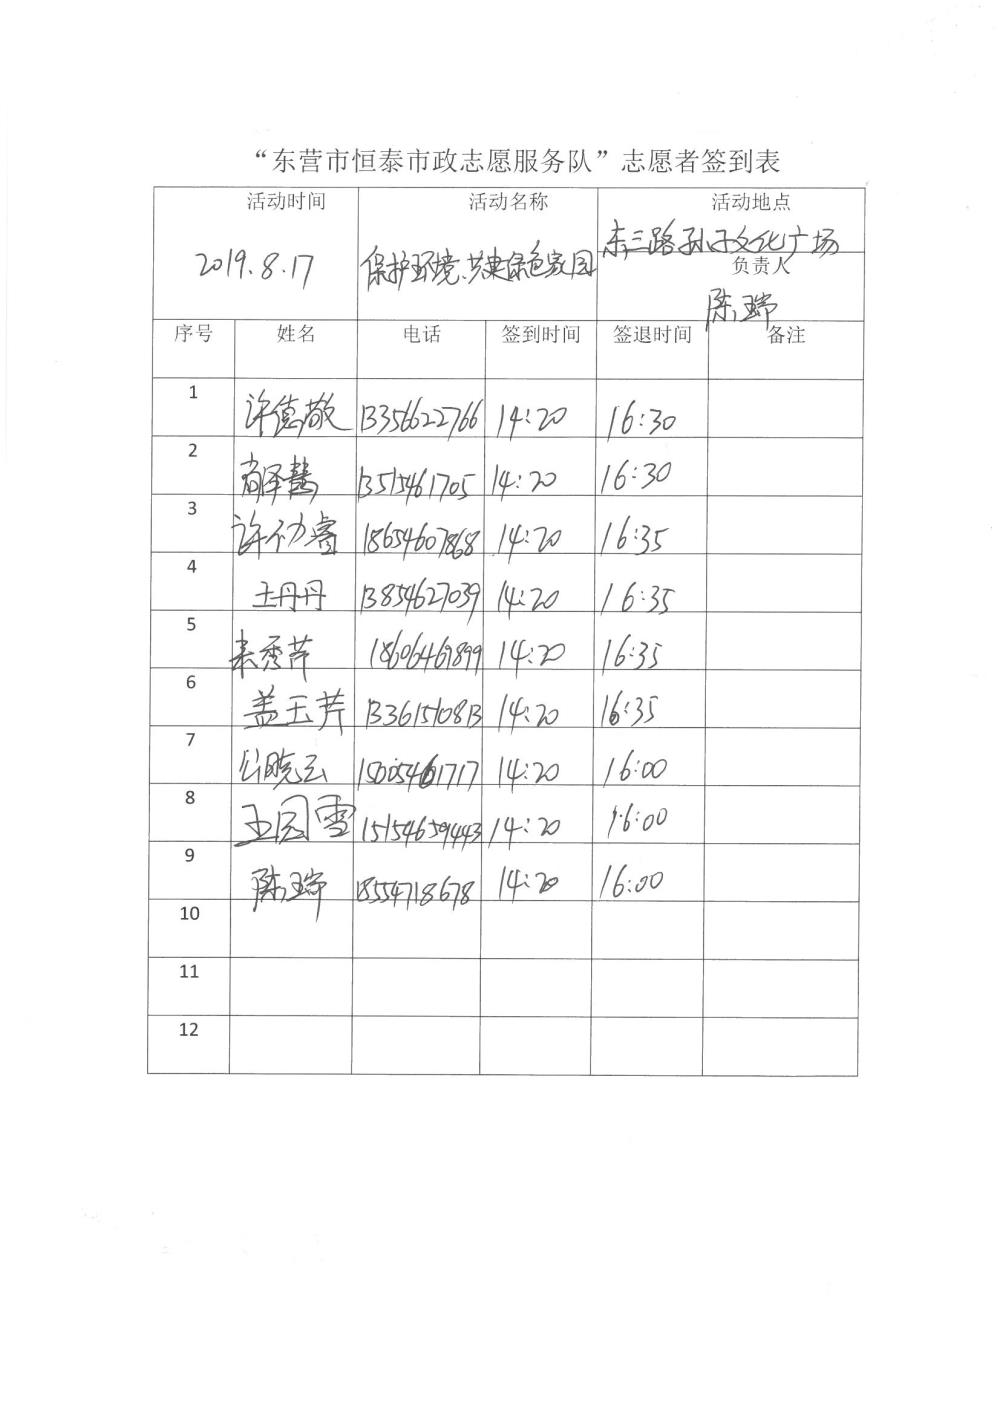 “东营市恒泰市政志愿服务队”志愿者签到表
活动时间 活动名称 活动地点
2019.8.17 保护环境、共建绿色家园 东三路孙子文化广场
负责人
陈瑞
序号 姓名 电话 签到时间 签退时间 备注
1 许德敬 13356622766 14:20 16:30
2 尚泽慧 13515461705 14:20 16:30
3 许 睿 18654607868 14:20 16:35
4 王丹丹 13854627039 14:20 16:35
5 秀芹 18606469899 14:20 16:35
6 盖玉芹 13361510813 14:20 16:35
7 公晓云 15005461717 14:20 16:00
8 王园雪 15154659443 14:20 16:00
9 陈瑞 18554718678 14:20 16:00
10
11
12